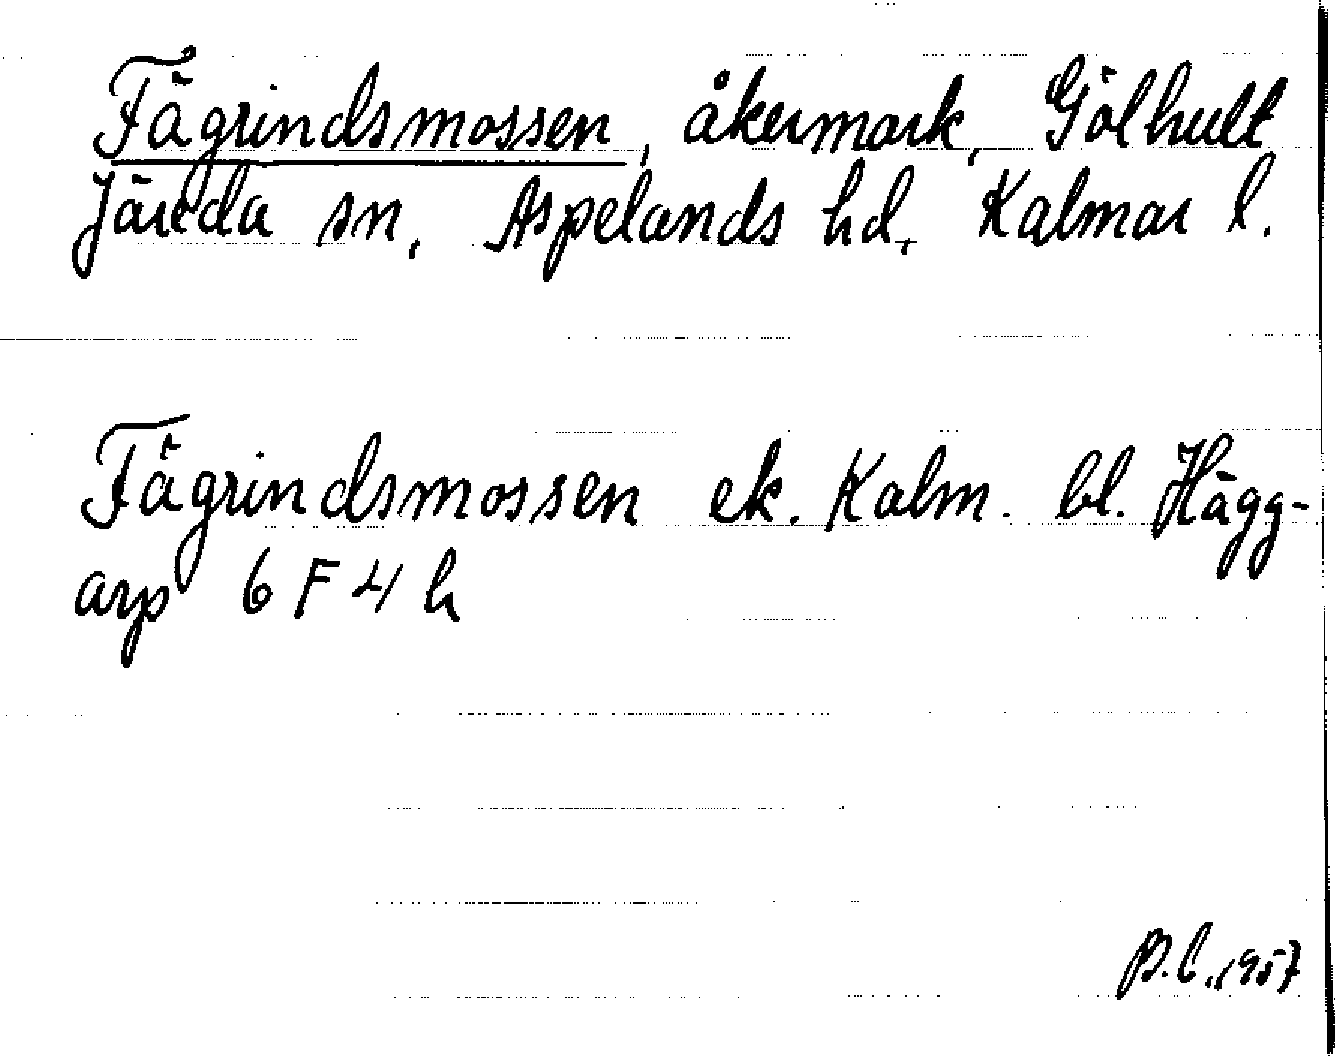 Fägrindsmossen, åkermark, Gölhult
Järeda sn, Aspelands hd, Kalmar l.
Fägrindsmossen ek. Kalm. bl. Hägg-
arp 6 F 4 h
B.C. 1957